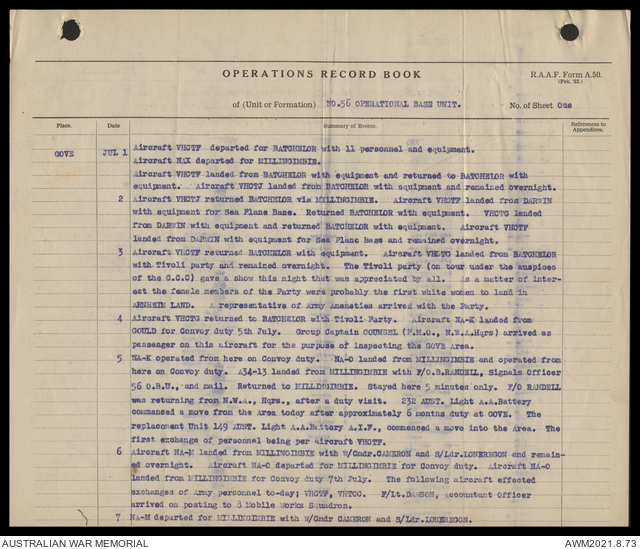 OPERATIONS RECORD BOOK
R.A.A.F. Form A.50.
(Feb. '22.)
of (Unit or Formation) NO.56 OPERATIONAL BASE UNIT.
No. of Sheet One
Place. Date Summary of Events. References to Appendices.
GOVE JUL 1 Aircraft VHCTF departed for BATCHELOR with 11 personnel and equipment.
Aircraft NAX departed for MILLINGIMBIE.
Aircraft VHCTF landed from BATCHELOR with equipment and returned to BATCHELOR with
equipment. Aircraft VHCTJ landed from BATCHELOR with equipment and remained overnight.
2 Aircraft VHCTJ returned BATCHELOR via MILLINGIMBIE. Aircraft VHCTF landed from DARWIN
with equipment for Sea Plane Base. Returned BATCHELOR with equipment. VHCTG landed
from DARWIN with equipment and returned BATCHELOR with equipment. Aircraft VHCTF
landed from DARWIN with equipment for Sea Plane Base and remained overnight.
3 Aircraft VHCTF returned BATCHELOR with equipment. Aircraft VHCTG landed from BATCHELOR
with Tivoli party and remained overnight. The Tivoli party (on tour under the auspices
of the G.C.C) gave a show this night that was appreciated by all. As a matter of inter-
est the female members of the Party were probably the first white women to land in
ARNHEIM LAND. A representative of Army Ameneties arrived with the Party.
4 Aircraft VHCTG returned to BATCHELOR with Tivoli Party. Aircraft NA-K landed from
GOULD for Convoy duty 5th July. Group Captain COUNSEL (P.M.O., N.W.A.Hqrs) arrived as
passenger on this aircraft for the purpose of inspecting the GOVE Area.
5 NA-K operated from here on Convoy duty. NA-O landed from MILLINGIMBIE and operated from
here on Convoy duty. A34-13 landed from MILLINGIMBIE with F/O.B.RANDELL, Signals Officer
56 O.B.U., and mail. Returned to MILLINGIMBIE. Stayed here 5 minutes only. F/O RANDELL
was returning from N.W.A., Hqrs., after a duty visit. 232 AUST. Light A.A.Battery
commenced a move from the Area today after approximately 6 months duty at GOVE. The
replacement Unit 149 AUST. Light A.A.Battery A.I.F., commenced a move into the Area. The
first exchange of personnel being per aircraft VHCTF.
6 Aircraft NA-M landed from MILLINGIMBIE with W/Cmdr.CAMERON and S/Ldr.LONERNGON and remain-
ed overnight. Aircraft NA-O departed for MILLINGIMBIE for Convoy duty. Aircraft NA-O
landed from MILLINGIMBIE for Convoy duty 7th July. The following aircraft effected
exchanges of Army personnel to-day; VHCTF, VHTCO. F/Lt.DAWSON, Accountant Officer
arrived on posting to 8 Mobile Works Squadron.
7 NA-M departed for MILLINGIMBIE with W/Cmdr CAMERON and S/Ldr.LONEREGON.
AUSTRALIAN WAR MEMORIAL
AWM2021.8.73